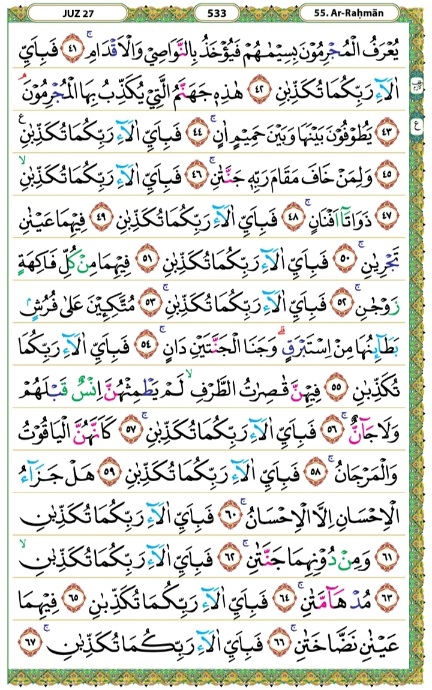 JUZ 27 533 55. Ar-Raḥmān
يُعْرَفُ الْمُجْرِمُوْنَ بِسِيْمٰىهُمْ فَيُؤْخَذُ بِالنَّوَاصِيْ وَالْاَقْدَامِۚ ٤١ فَبِاَيِّ
اٰلَاۤءِ رَبِّكُمَا تُكَذِّبٰنِ ٤٢ هٰذِهٖ جَهَنَّمُ الَّتِيْ يُكَذِّبُ بِهَا الْمُجْرِمُوْنَۘ
٤٣ يَطُوْفُوْنَ بَيْنَهَا وَبَيْنَ حَمِيْمٍ اٰنٍۚ ٤٤ فَبِاَيِّ اٰلَاۤءِ رَبِّكُمَا تُكَذِّبٰنِࣖ
٤٥ وَلِمَنْ خَافَ مَقَامَ رَبِّهٖ جَنَّتٰنِۚ ٤٦ فَبِاَيِّ اٰلَاۤءِ رَبِّكُمَا تُكَذِّبٰنِۙ
٤٧ ذَوَاتَآ اَفْنَانٍۚ ٤٨ فَبِاَيِّ اٰلَاۤءِ رَبِّكُمَا تُكَذِّبٰنِ ٤٩ فِيْهِمَا عَيْنٰنِ
تَجْرِيٰنِۚ ٥٠ فَبِاَيِّ اٰلَاۤءِ رَبِّكُمَا تُكَذِّبٰنِ ٥١ فِيْهِمَا مِنْ كُلِّ فَاكِهَةٍ
زَوْجٰنِۚ ٥٢ فَبِاَيِّ اٰلَاۤءِ رَبِّكُمَا تُكَذِّبٰنِۚ ٥٣ مُتَّكِـِٕيْنَ عَلٰى فُرُشٍۢ
بَطَاۤىِٕنُهَا مِنْ اِسْتَبْرَقٍۗ وَجَنَا الْجَنَّتَيْنِ دَانٍۚ ٥٤ فَبِاَيِّ اٰلَاۤءِ رَبِّكُمَا
تُكَذِّبٰنِ ٥٥ فِيْهِنَّ قٰصِرٰتُ الطَّرْفِۙ لَمْ يَطْمِثْهُنَّ اِنْسٌ قَبْلَهُمْ
وَلَا جَاۤنٌّۚ ٥٦ فَبِاَيِّ اٰلَاۤءِ رَبِّكُمَا تُكَذِّبٰنِۚ ٥٧ كَاَنَّهُنَّ الْيَاقُوْتُ
وَالْمَرْجَانُۚ ٥٨ فَبِاَيِّ اٰلَاۤءِ رَبِّكُمَا تُكَذِّبٰنِ ٥٩ هَلْ جَزَاۤءُ
الْاِحْسَانِ اِلَّا الْاِحْسَانُۚ ٦٠ فَبِاَيِّ اٰلَاۤءِ رَبِّكُمَا تُكَذِّبٰنِ
٦١ وَمِنْ دُوْنِهِمَا جَنَّتٰنِۚ ٦٢ فَبِاَيِّ اٰلَاۤءِ رَبِّكُمَا تُكَذِّبٰنِۙ
٦٣ مُدْهَاۤمَّتٰنِۚ ٦٤ فَبِاَيِّ اٰلَاۤءِ رَبِّكُمَا تُكَذِّبٰنِۚ ٦٥ فِيْهِمَا
عَيْنٰنِ نَضَّاخَتٰنِۚ ٦٦ فَبِاَيِّ اٰلَاۤءِ رَبِّكُمَا تُكَذِّبٰنِۚ ٦٧